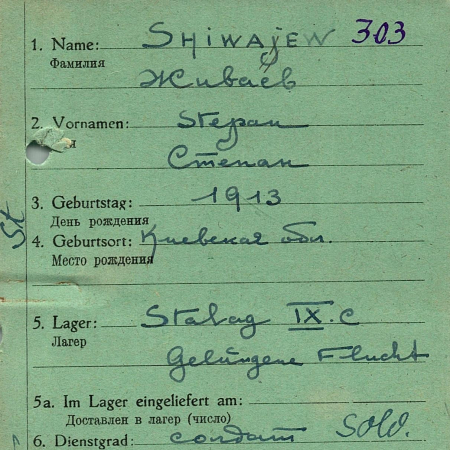 1. Name: SHIWAJEW 303
Фамилия Живаев
2. Vornamen: Stepan
Степан
3. Geburtstag: 1913
День рождения
4. Geburtsort: Киевская обл.
Место рождения
St
5. Lager: Stalag IX.C
Лагер
Gelungene Flucht
5a. Im Lager eingeliefert am:
Доставлен в лагер (число)
6. Dienstgrad: Sold.